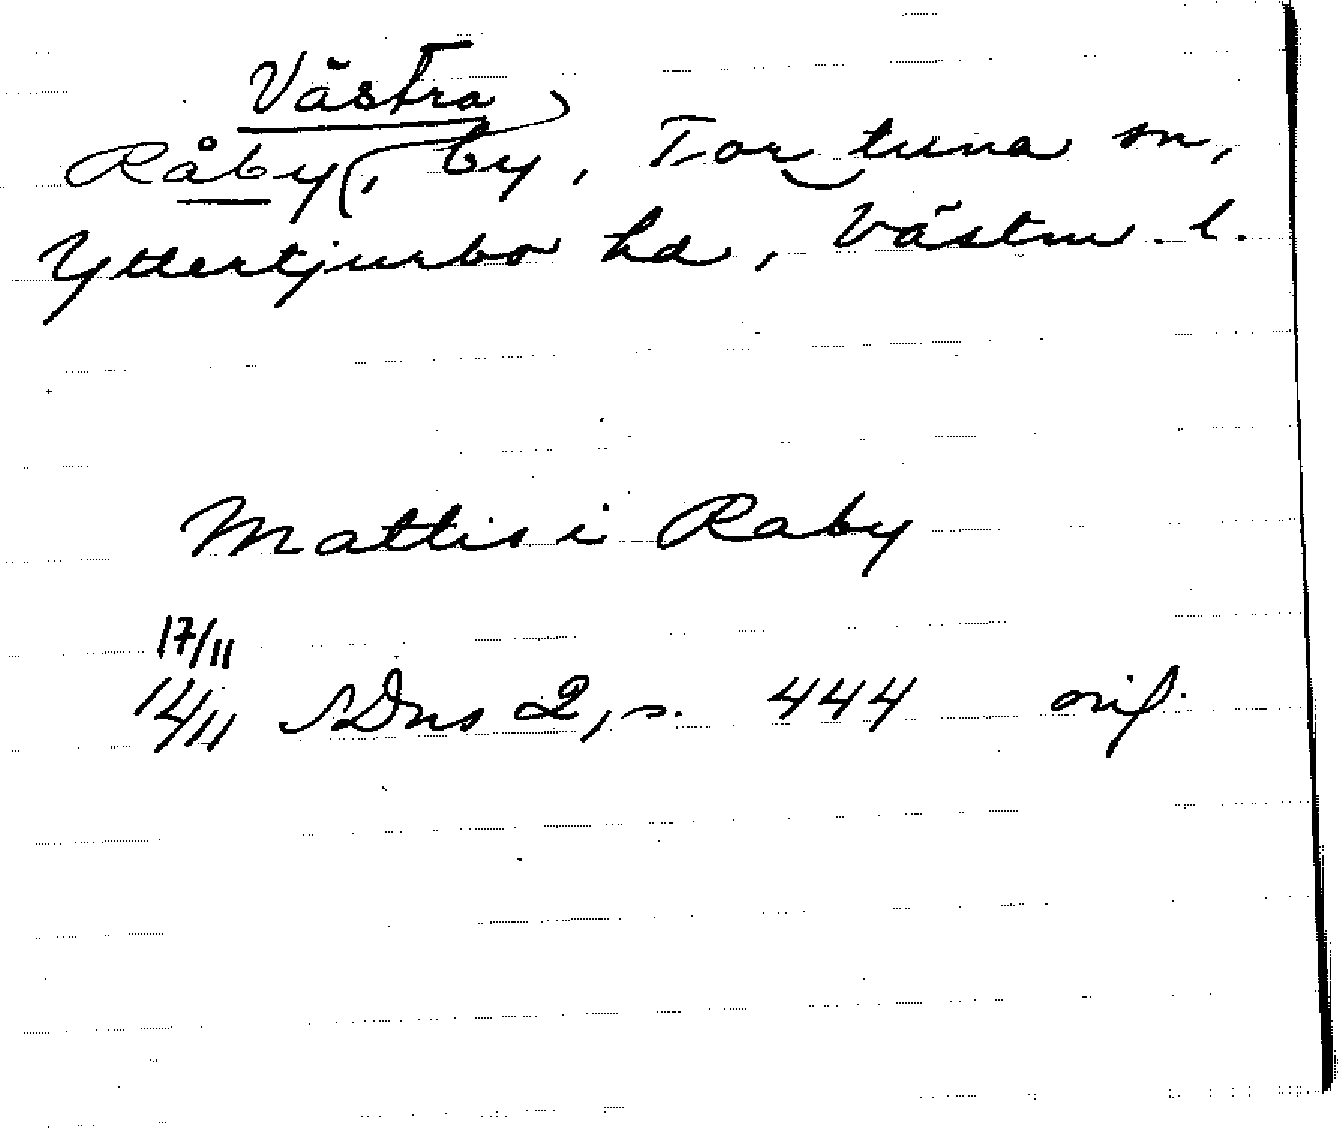 Västra
Råby, by, Tortuna sn,
Yttertjurbo hd, Västm. l.
Mattis i Raby
17/11
14/11 SDns 2, s. 444 orig.